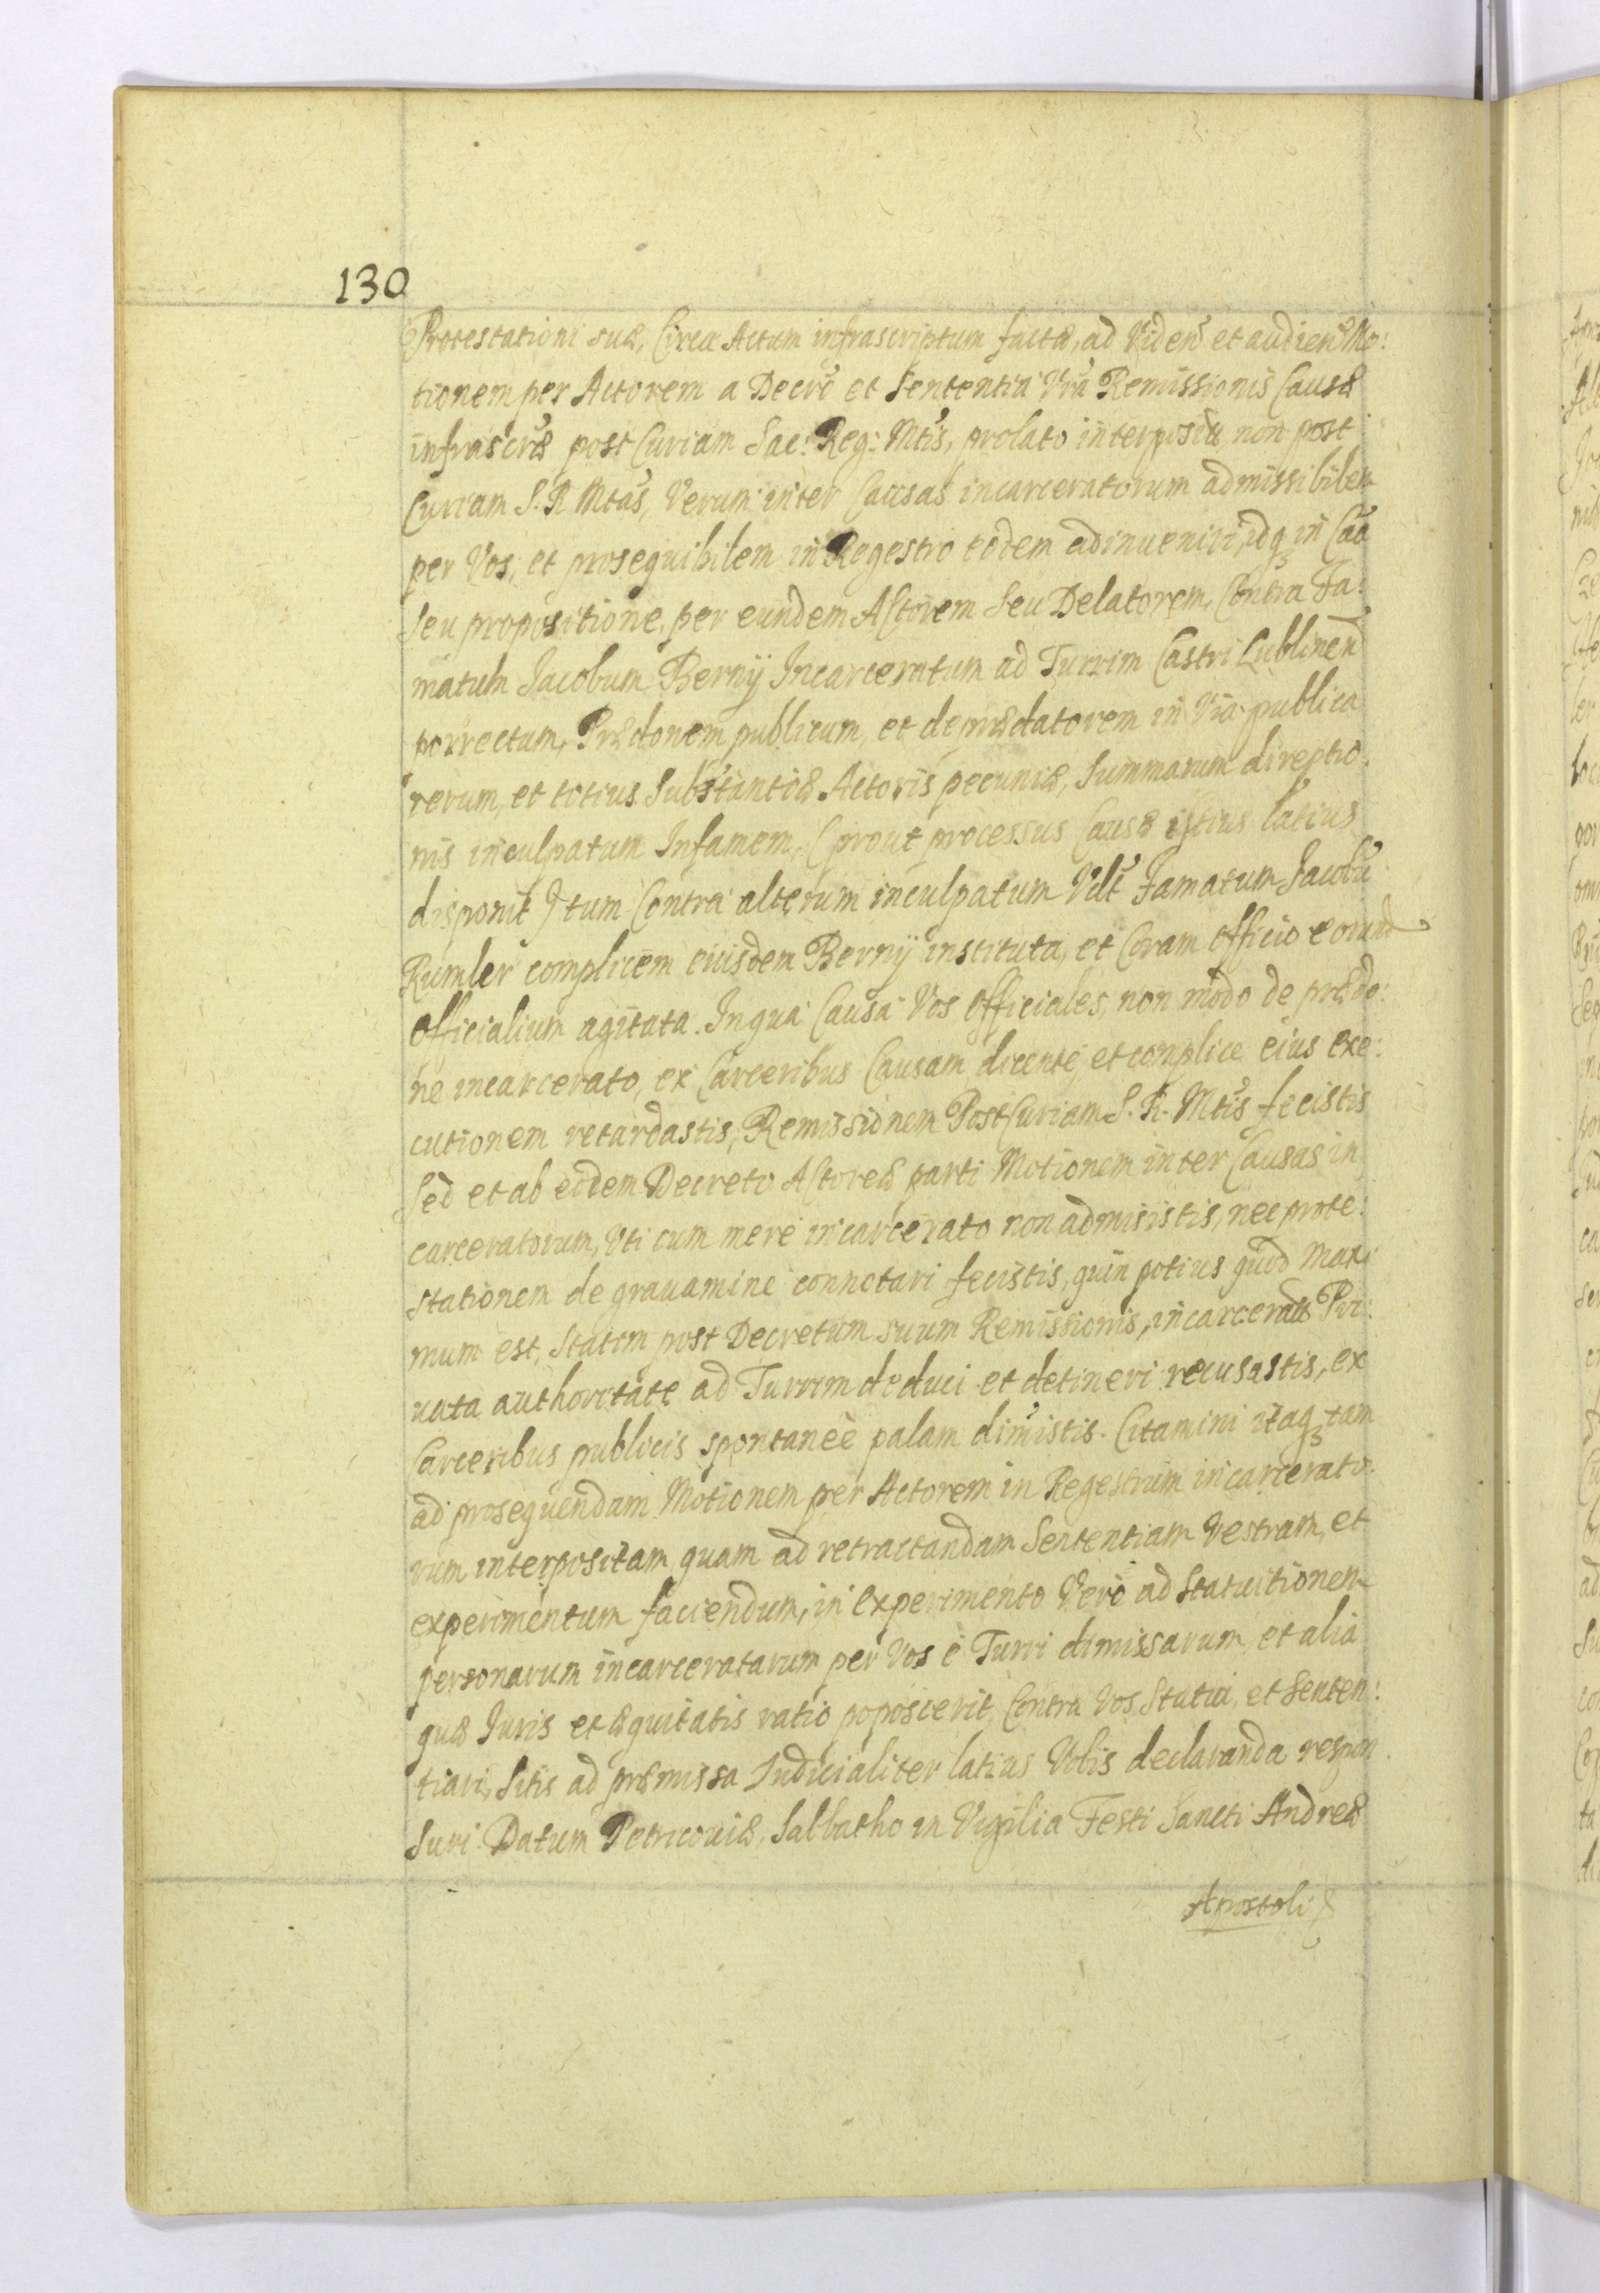 130
Protestationi suæ, Circa Actum infrascriptum factæ, ad Viden̄ et audien̄ Mo:
tionem per Actorem a Decrō et Sententia Vrā Remissionis Causæ
infrascrǣ post Curiam Sac: Reg: Mtis, prolato interpositæ non post
Curiam S. R. Mtis, Verum inter Causas incarceratorum admissibilem
per Vos, et prosequibilem in Regestro eodem adinueniri, idq3 in Caā
Seu propositione, per eundem Actorem Seu Delatorem, Contra Fa:
matum Jacobum Bernÿ Incarceratum ad Turrim Castri Lublinen̄
porrectum, Prædonem publicum, et deprædatorem in Via publica
rerum, et totius Substantiæ Actoris pecuniæ, Summarum direptio:
nis inculpatum Infamem, (prout processus Causæ istius latius
disponit) tum Contra alterum inculpatum Vdlt Famatum Jacobū
Rumler complicem eiusdem Bernÿ instituta, et Coram Officio eorund
Officialium agitata. In qua Causa Vos Officiales, non modo de prædo:
ne incarcerato, ex Carceribus Causam dicente, et complice eius exe:
cutionem retardastis, Remissionem Post Curiam S. R. Mtis fecistis
Sed et ab eodem Decreto Actoreæ parti Motionem inter Causas in
carceratorum, Vti cum mere incarcerato non admisistis, nec prote:
stationem de grauamine connotari fecistis, quin potius quod maxi
mum est, Statim post Decretum suum Remissionis, incarceratos Pri:
uata authoritate ad Turrim deduci et detineri recusastis, ex
Carceribus publicis spontanee palam dimistis. Citamini itaq3 tam
ad prosequendam Motionem per Actorem in Regestrum incarcerato:
rum interpositam, quam ad retractandam Sententiam Vestram, et
experimentum faciendum, in Experimento Vero ad Statuitionem
personarum incarceratarum per Vos e Turri dimissarum, et alia
quæ Juris et æquitatis ratio poposcerit, Contra Vos Statui, et Senten:
tiari, Sitis ad præmissa Judicialiter latius Vobis declaranda respon
Suri. Datum Petricoviæ, Sabbatho in Vigilia Festi Sancti Andreæ
Apostoli